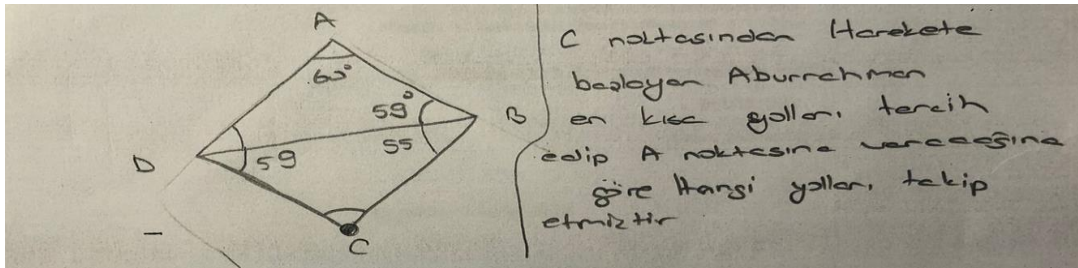 A
60°
59°
B
D
59
55
C
C noktasından Harekete
başlayan Aburrahman
en kısa yolları tercih
edip A noktasına varacağına
göre Hangi yolları takip
etmiştir